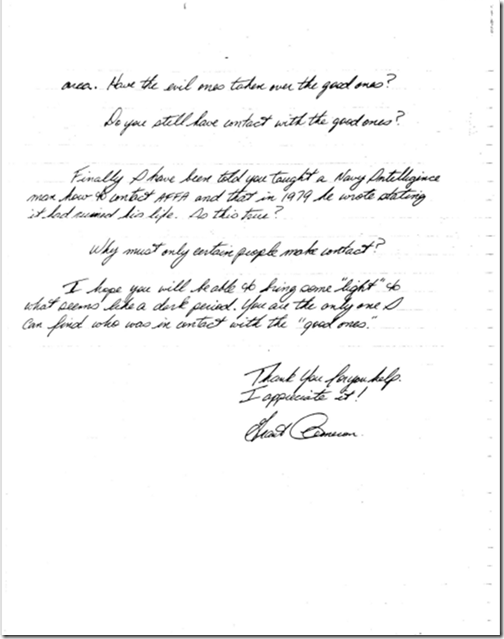 area. Have the evil ones taken over the good ones?
Do you still have contact with the good ones?
Finally I have been told you taught a Navy Intelligence
man how to contact AFFA and that in 1979 he wrote stating
it had ruined his life. Is this true?
Why must only certain people make contact?
I hope you will be able to bring some "light" to
what seems like a dark period. You are the only one I
can find who was in contact with the "good ones."
Thank You for you help.
I appreciate it!
Grant Cameron.